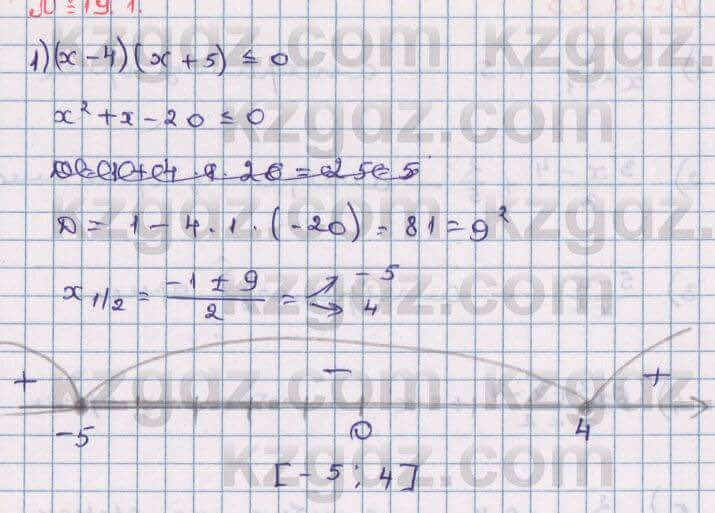 № 19.1.
1) (x-4)(x+5) ≤ 0
x² + x - 20 ≤ 0
D = 1 - 4·1·(-20) = 81 = 9²
x 1/2 = (-1 ± 9)/2 = -5
4
+ - +
-5 0 4
[-5; 4]
kzgdz.com